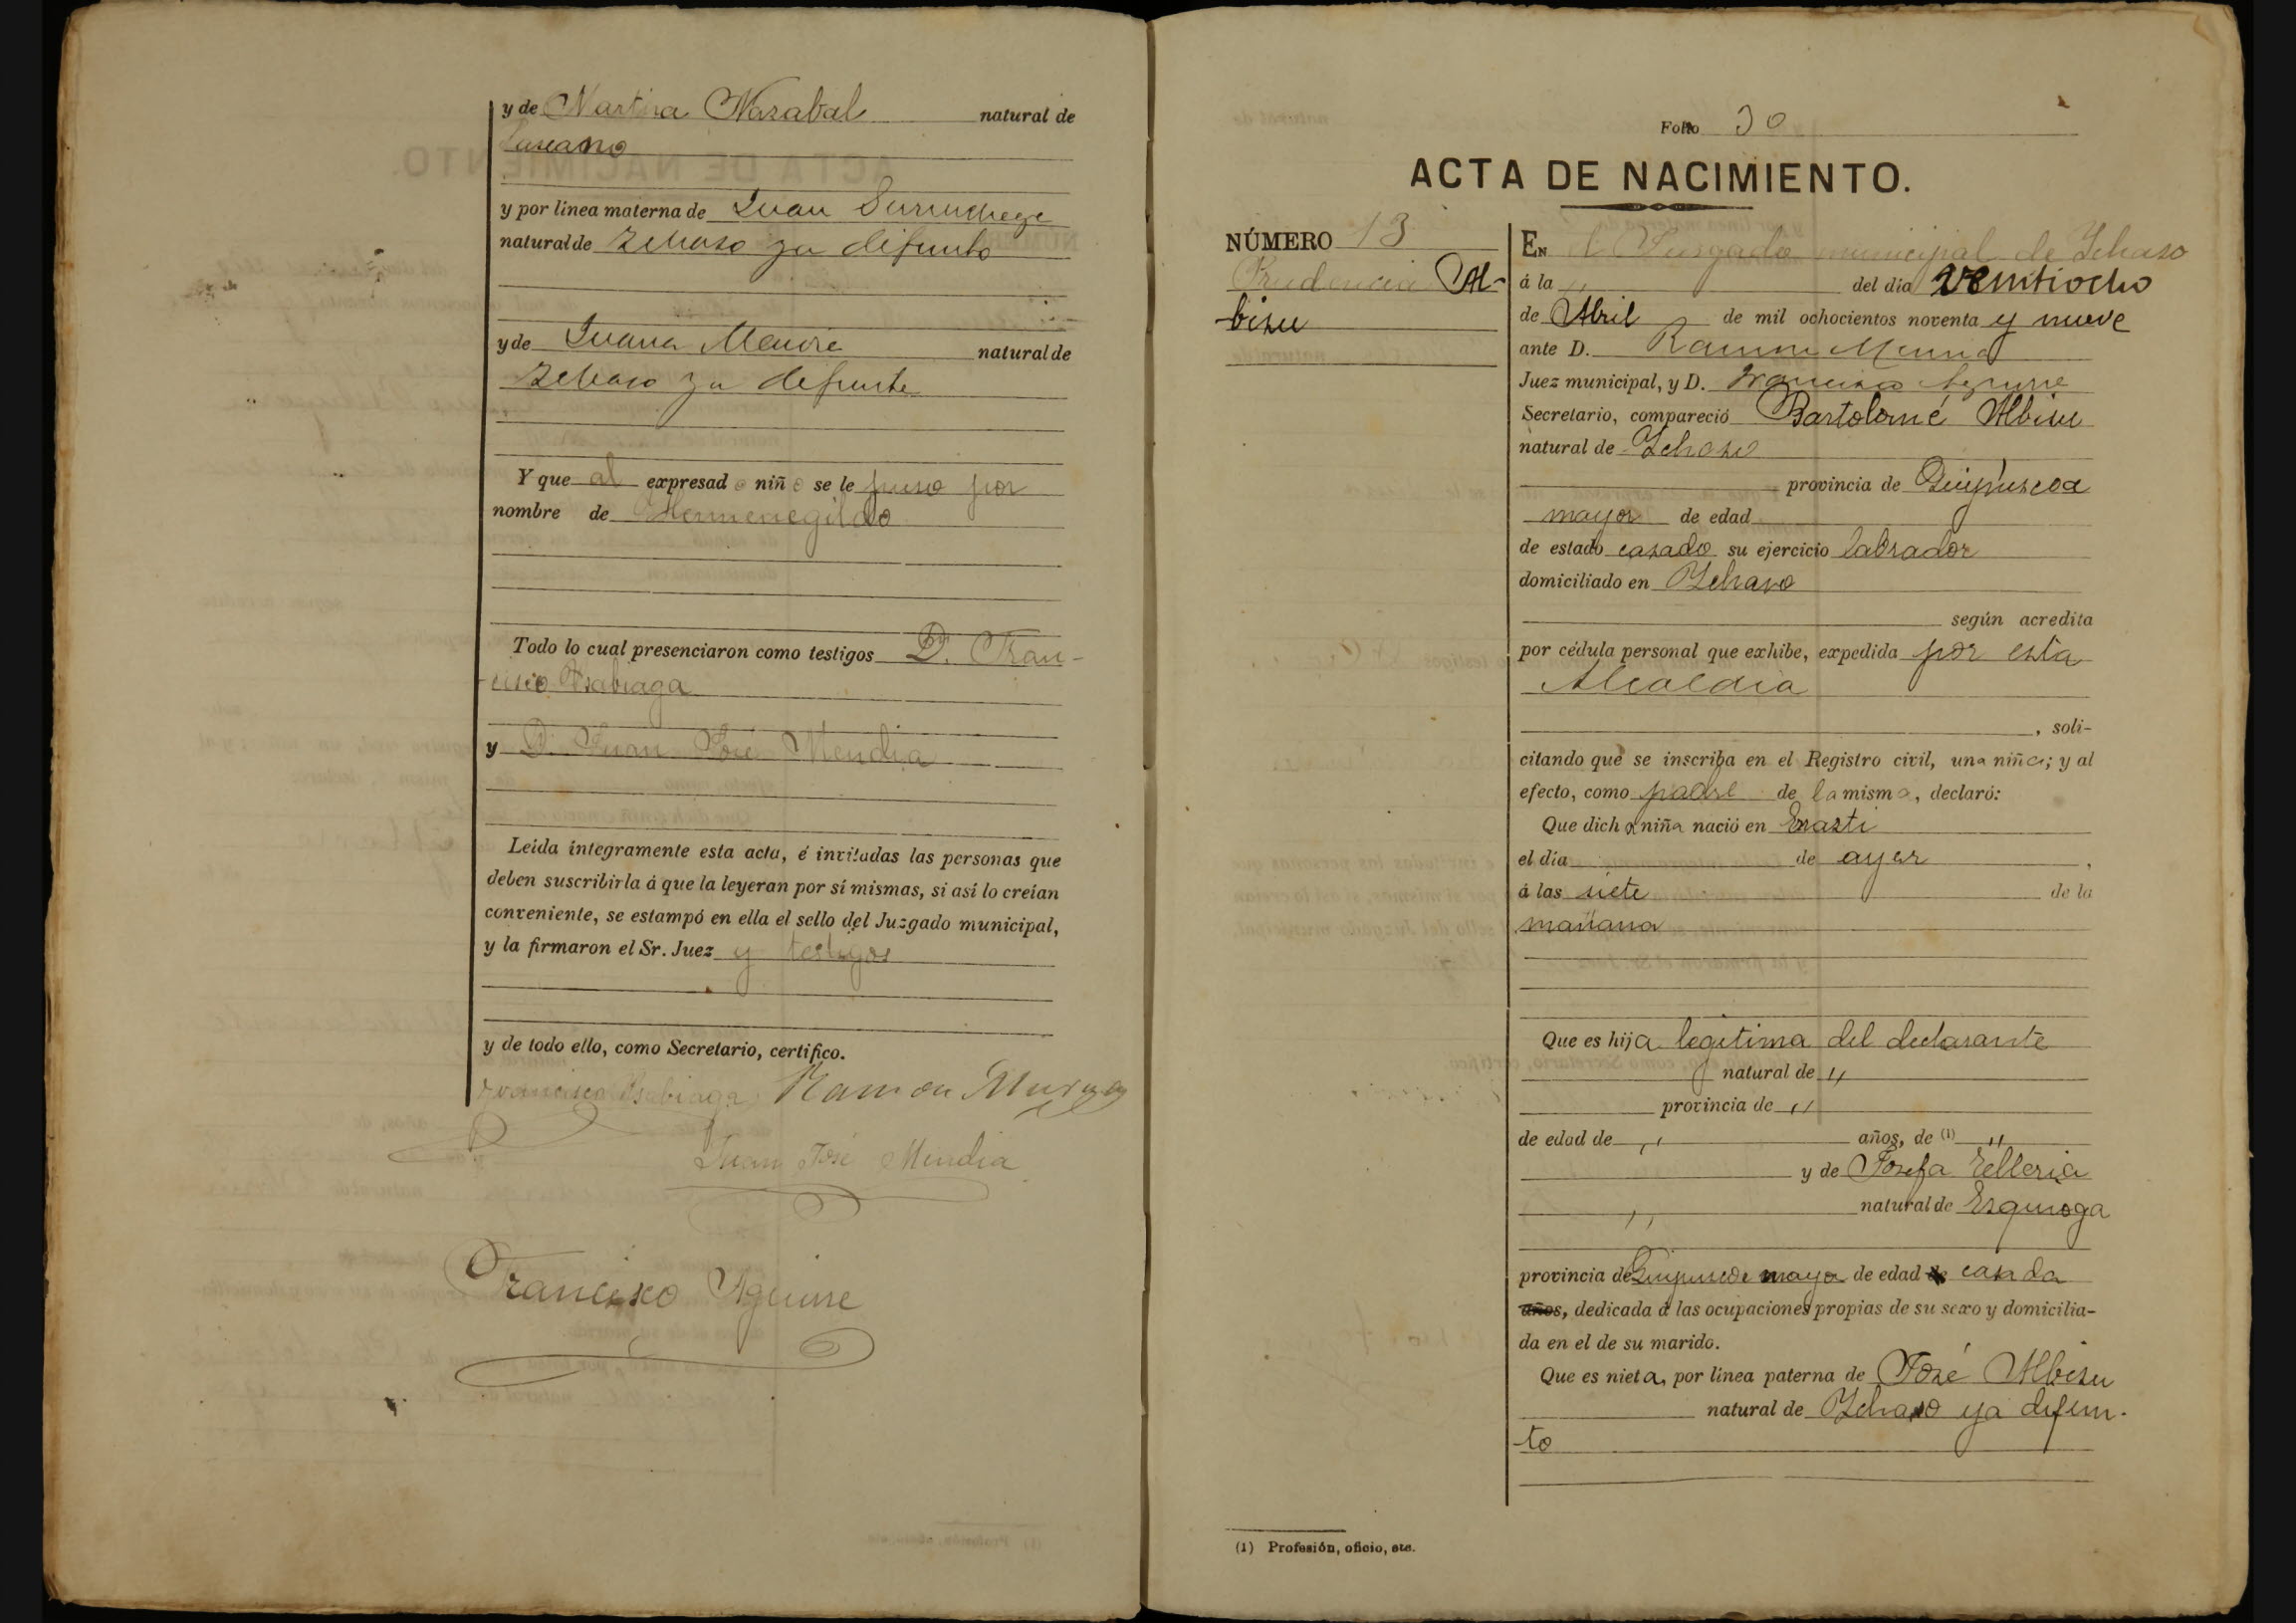 y de Martina Nazabal natural de
Lascano
y por linea materna de Juan
natural de Ichaso ya difunto
y de Juana natural de
Ichaso ya difunta
Y que al expresado niño se le puso por
nombre de Hermenegildo
Todo lo cual presenciaron como testigos D. Fran-
cisco Ysabiaga
y D. Juan José Mendia
Leída íntegramente esta acta, é invitadas las personas que
deben suscribirla á que la leyeran por sí mismas, si así lo creían
conveniente, se estampó en ella el sello del Juzgado municipal,
y la firmaron el Sr. Juez y testigos
y de todo ello, como Secretario, certifico.
Francisco Ysabiaga Ramon Murua
Juan José Mendia
Francisco Aguirre
Folio 30
ACTA DE NACIMIENTO.
NÚMERO 13
Prudencia Al-
bisu
EN el Jusgado municipal de Ichaso
á la " del dia veintiocho
de Abril de mil ochocientos noventa y nueve
ante D. Ramon Murua
Juez municipal, y D. Francisco Aguirre
Secretario, compareció Bartolomé Albisu
natural de Ichaso
provincia de Guipuscoa
mayor de edad
de estado casado su ejercicio labrador
domiciliado en Ychaso
según acredita
por cédula personal que exhibe, expedida por esta
Alcaldia
, soli-
citando que se inscriba en el Registro civil, una niña; y al
efecto, como padre de la misma, declaró:
Que dicha niña nació en
el día de ayer ,
á las siete de la
mañana
Que es hija legitima del declarante
natural de "
provincia de "
de edad de " años, de (1) "
y de Josefa Telleria
" natural de Esquioga
provincia de Guipuscoa mayor de edad de casada
años, dedicada á las ocupaciones propias de su sexo y domicilia-
da en el de su marido.
Que es nieta, por linea paterna de José Albisu
natural de Ychaso ya difun-
to
(1) Profesión, oficio, etc.